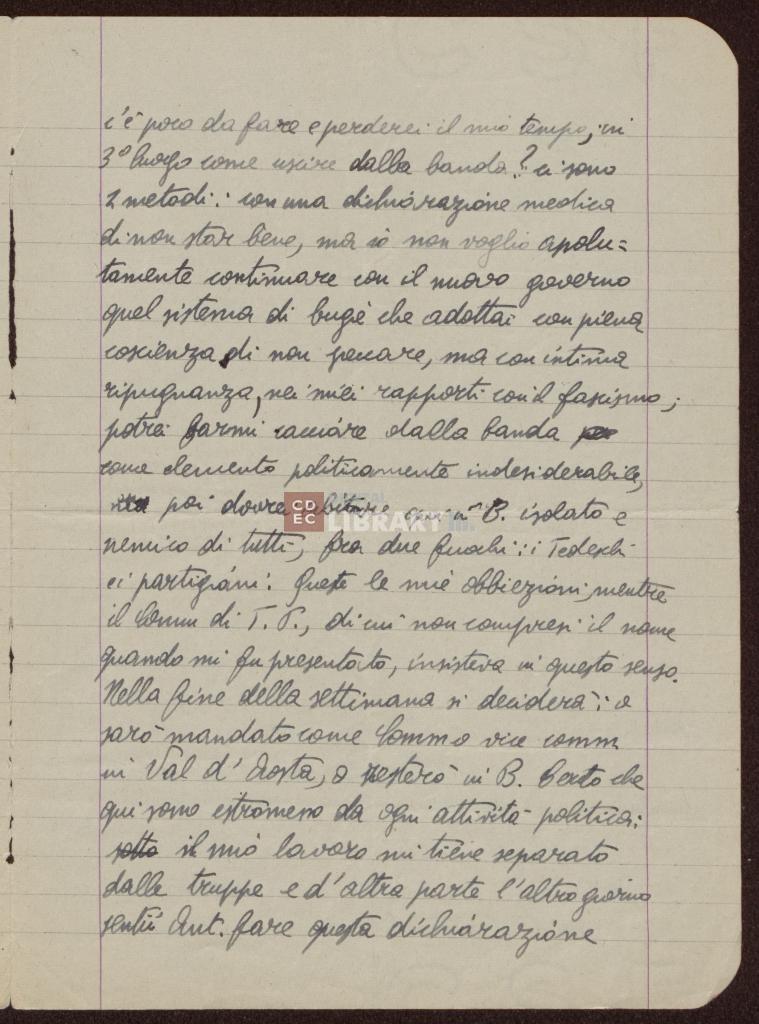 c'è poco da fare e perderei il mio tempo; in
3º luogo come uscire dalla banda? ci sono
2 metodi: con una dichiarazione medica
di non star bene, ma io non voglio apolu=
tamente continuare con il nuovo governo
quel sistema di bugie che adottai con piena
coscienza di non peccare, ma con intima
ripugnanza, nei miei rapporti con il fascismo;
potrei farmi cacciare dalla banda
come elemento politicamente indesiderabile,
poi dovrei in B. isolato e
nemico di tutti, fra due fuochi: i Tedeschi
e i partigiani. Queste le mie obbiezioni, mentre
il Comm di T. P., di cui non compresi il nome
quando mi fu presentato, insisteva in questo senso.
Nella fine della settimana si deciderà: o
sarò mandato come Comm o vice comm
in Val d'Aosta, o resterò in B. Certo che
qui sono estromesso da ogni attività politica:
sotto il mio lavoro mi tiene separato
dalle truppe e d'altra parte l'altro giorno
sentii Ant. fare questa dichiarazione
CDEC
DIGITAL
LIBRARY